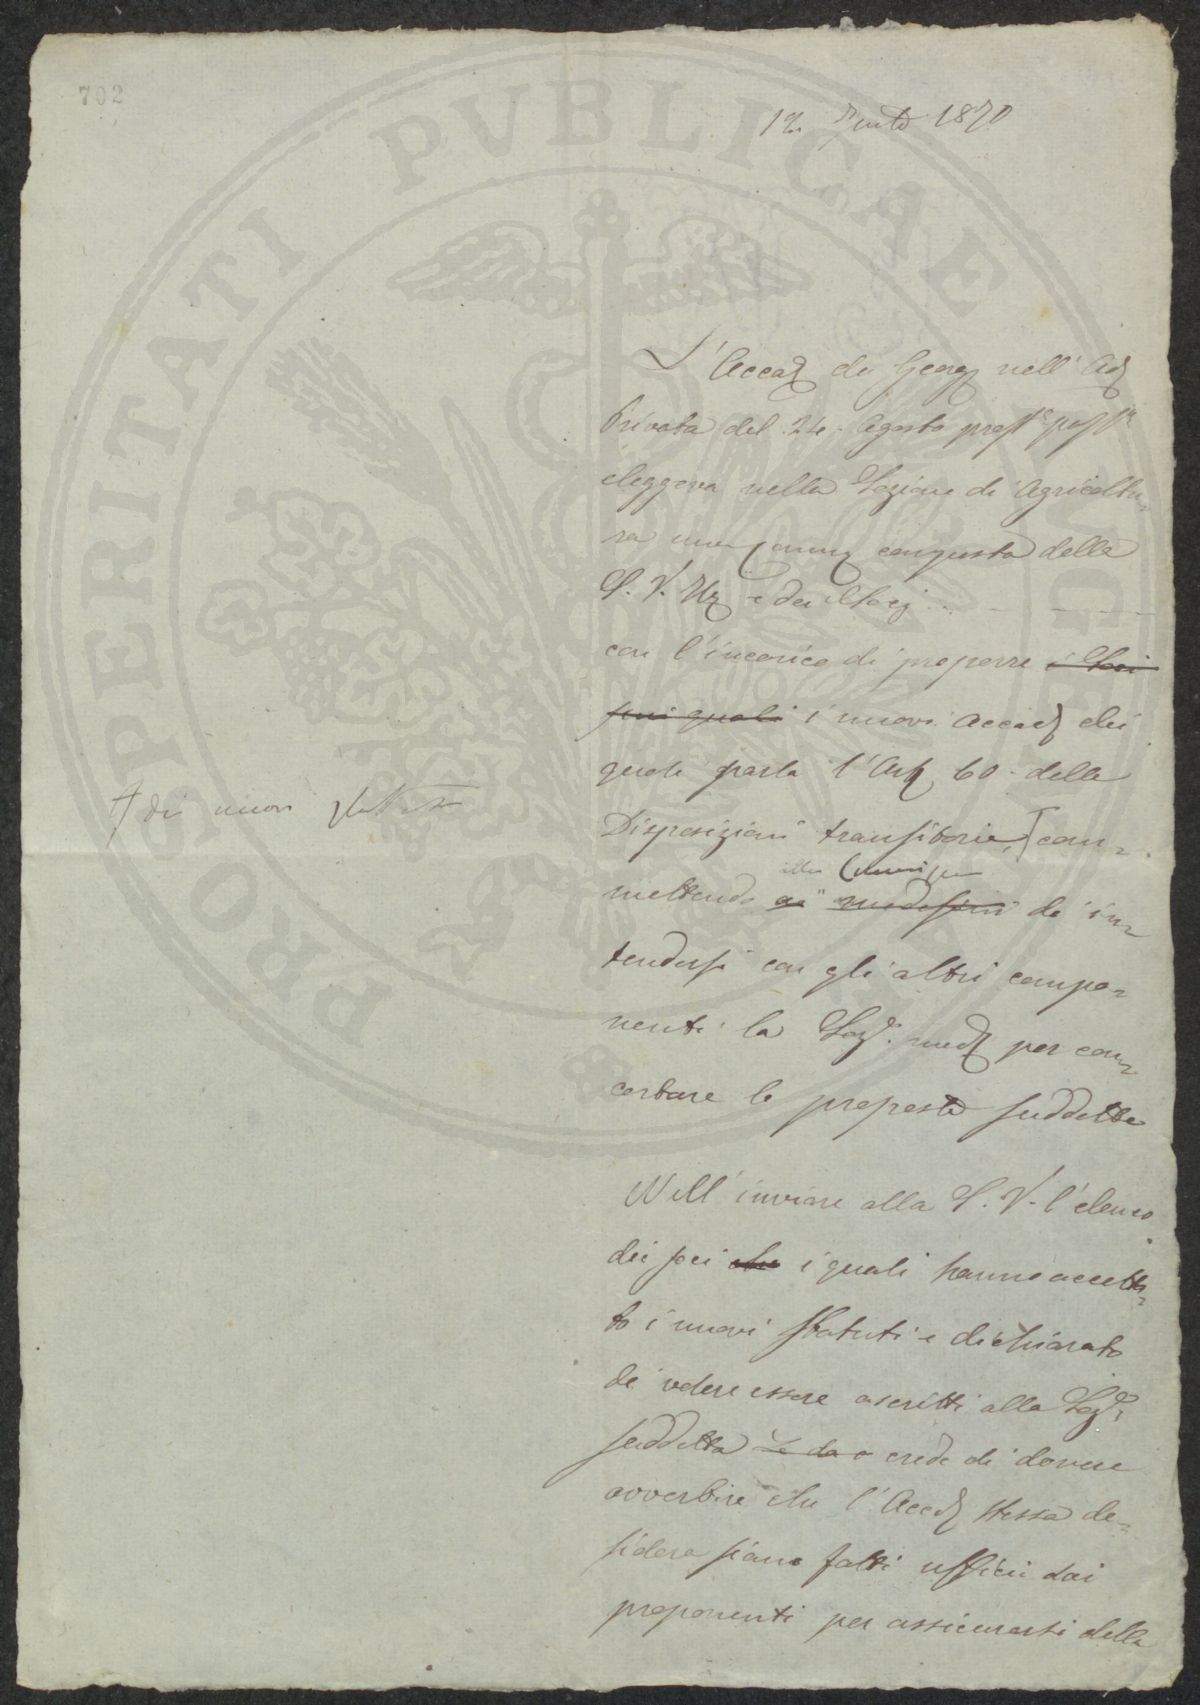 702
12. 1870
L'Accad de Georg nell' Ad
privata del 24. Agosto pross° pass°
eleggeva nella Sezione di Agricoltu-
ra una Comm composta della
S. V. Ill e dei Socj . . . . .
con l'incarico di proporre i Soci
pei quali i nuovi Accad dei
quali parla l'Art 60. delle
Disposizioni transitorie, com-
‡ di nuovi
alla Commissione
mettendo ai medesimi di in-
tendersi con gli altri compo-
nenti la Sez. med per con-
certare le proposte suddette
Nell' inviare alla S. V. l'elenco
dei soci che i quali hanno accetta-
to i nuovi Statuti e dichiarato
di volere essere ascritti alla Sez.
suddetta crede di dovere
avvertire che l'Accad stessa de-
sidera siano fatti ufficii dai
proponenti per assicurarsi della
PROSPERITATI PVBLICAE